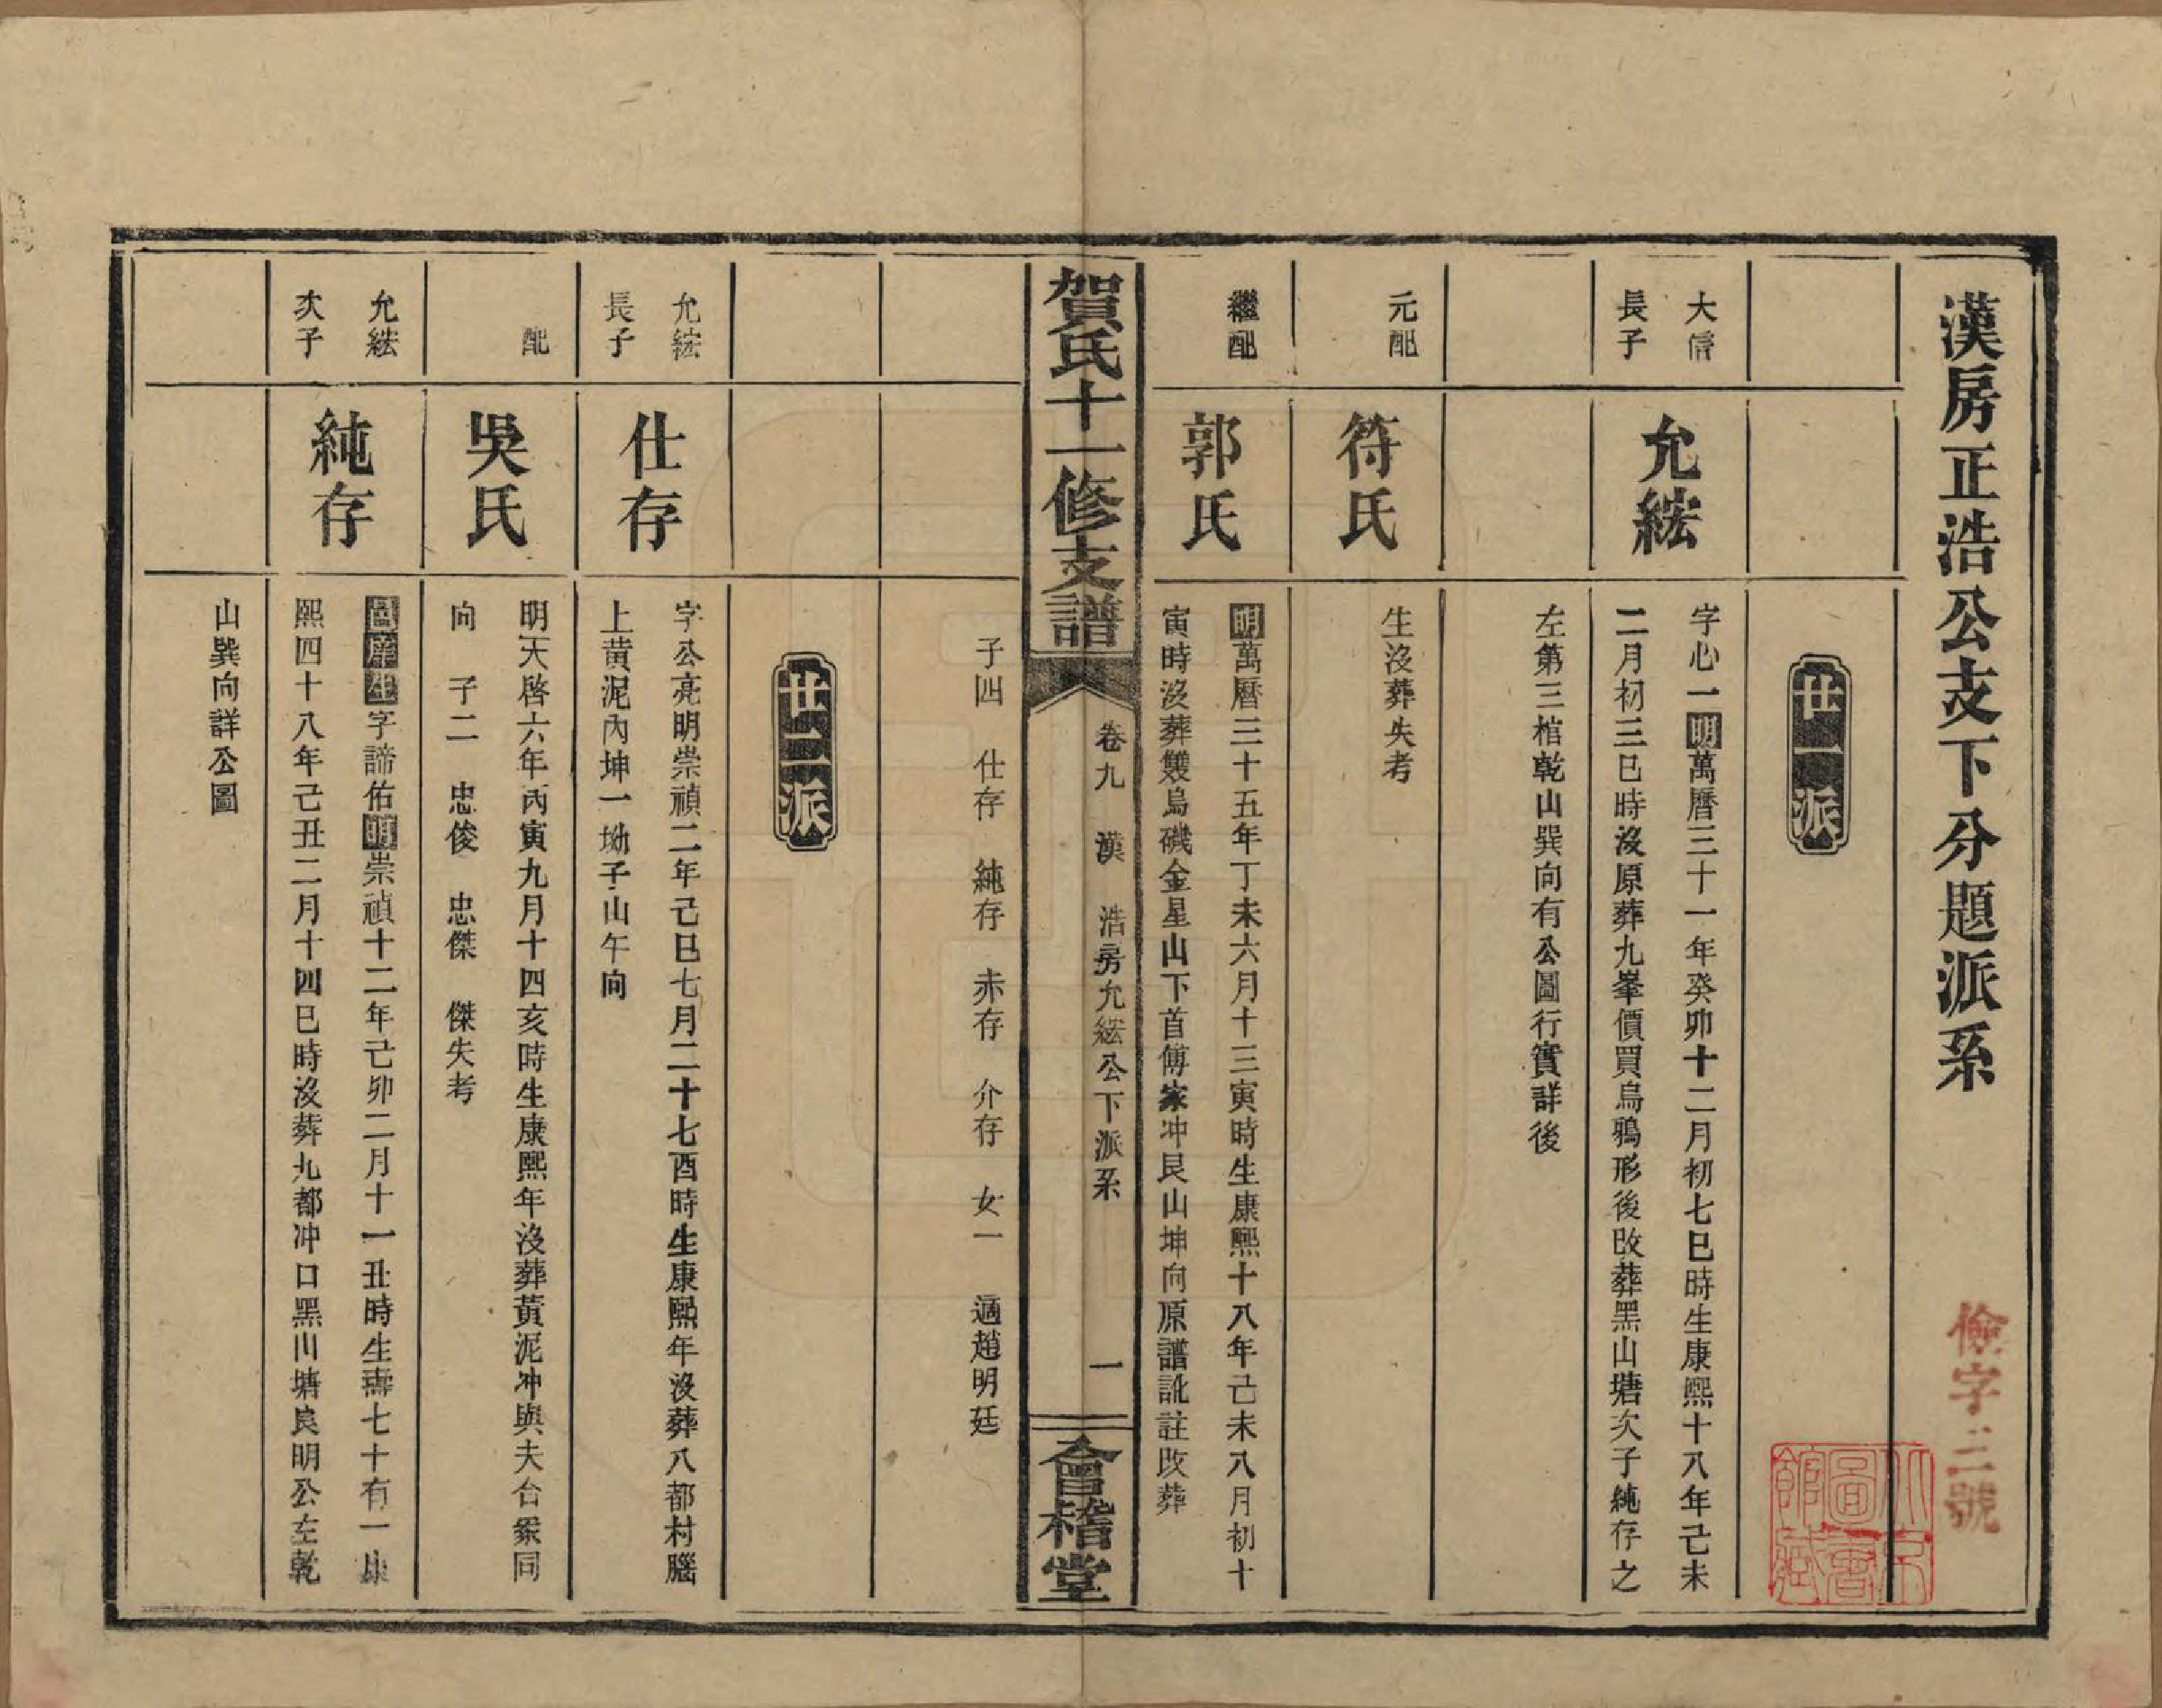 漢房正浩公支下分題派系
儉字三號
北京圖書館藏
廿一派
大信
長子
允紘
字心一明萬曆三十一年癸卯十二月初七巳時生康熙十八年己未
二月初三巳時沒原葬九峯價買烏鴉形後改葬黑山塘次子純存之
左第三棺乾山巽向有公圖行實詳後
元配
符氏
生沒葬失考
繼配
郭氏
明萬曆三十五年丁未六月十三寅時生康熙十八年己未八月初十
寅時沒葬雙烏磯金星山下首傅家冲艮山坤向原譜訛註改葬
賀氏十一修支譜
卷九 漢 浩房允紘公下派系
一
會稽堂
子四 仕存 純存 赤存 介存 女一 適趙明廷
廿二派
允紘
長子
仕存
字公亮明崇禎二年己巳七月二十七酉時生康熙年沒葬八都村腦
上黃泥內坤一坳子山午向
配
吳氏
明天啓六年丙寅九月十四亥時生康熙年沒葬黃泥冲與夫台槃同
向 子二 忠俊 忠傑 傑失考
允紘
次子
純存
邑庠生字諦佑明崇禎十二年己卯二月十一丑時生壽七十有一康
熙四十八年己丑二月十四巳時沒葬九都冲口黑川塘良明公左乾
山巽向詳公圖